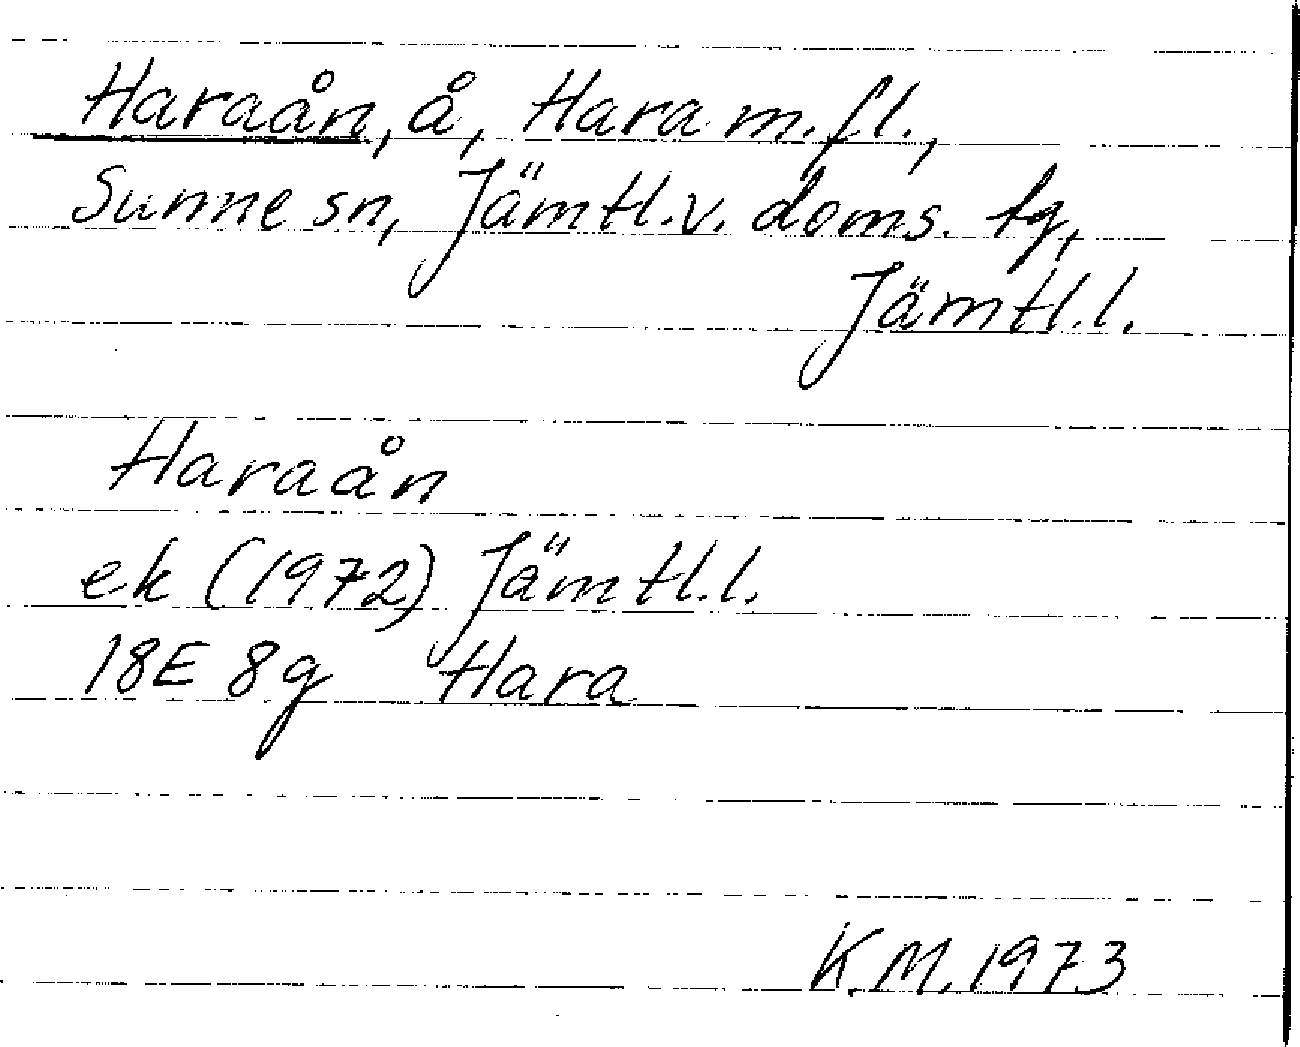 Haraån, å, Hara m.fl.,
Sunne sn, Jämtl.v. doms. tg,
Jämtl.l.
Haraån
ek (1972) Jämtl.l.
18E 8g Hara
K.M. 1973